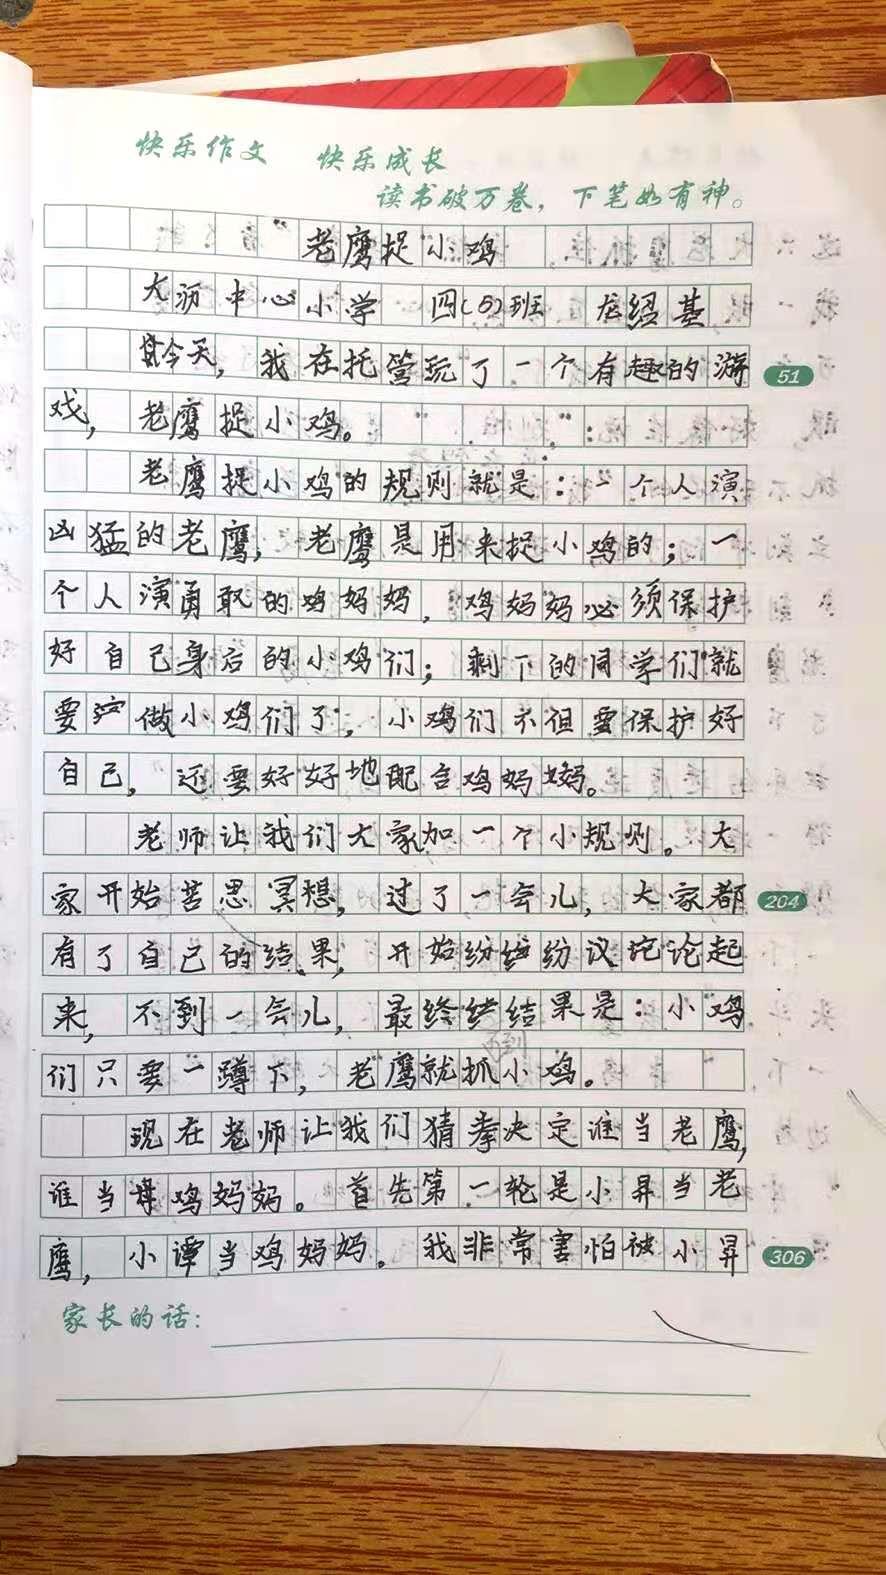 快乐作文 快乐成长
读书破万卷，下笔如有神。
老鹰捉小鸡
大沥中心小学 四(5)班 龙绍基
今天，我在托管玩了一个有趣的游
51
戏，老鹰捉小鸡。
老鹰捉小鸡的规则就是：一个人演
凶猛的老鹰，老鹰是用来捉小鸡的；一
个人演勇敢的鸡妈妈，鸡妈妈必须保护
好自己身后的小鸡们；剩下的同学们就
要做小鸡们了，小鸡们不但要保护好
自己，还要好好地配合鸡妈妈。
老师让我们大家加一个小规则。大
家开始苦思冥想，过了一会儿，大家都
204
有了自己的结果，开始纷纷议论起
来，不到一会儿，最终结果是：小鸡
们只要一蹲下，老鹰就抓小鸡。
现在老师让我们猜拳决定谁当老鹰，
谁当鸡妈妈。首先第一轮是小昇当老
鹰，小谭当鸡妈妈。我非常害怕被小昇
306
家长的话：